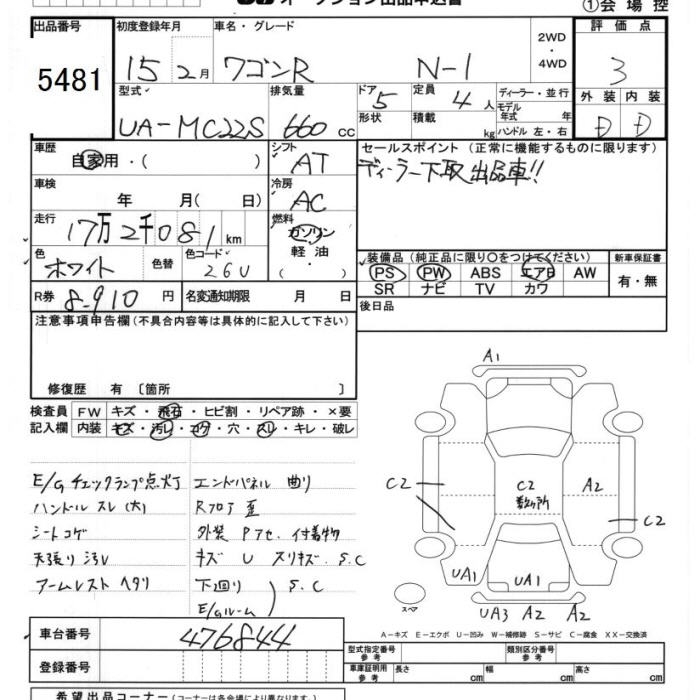 オークション出品申込書 ①会場控
出品番号 初度登録年月 車名・グレード 2WD・4WD 評価点
5481 15 2月 ワゴンR N-1 3
型式 排気量 ドア 5 定員 4人 ディーラー・並行 外装 内装
UA-MC22S 660cc 形状 積載 kg モデル年式 年 ハンドル 左・右 D D
車歴 自家用・( ) シフト AT セールスポイント (正常に機能するものに限ります)
ディーラー下取出品車!!
車検 年 月( 日) 冷房 AC
走行 17万2千081km 燃料 ガソリン・軽油・( )
色 ホワイト 色替 色コード 26U
装備品 (純正品に限り○をつけてください) 新車保証書
PS PW ABS エアB AW 有・無
SR ナビ TV カワ
R券 8-910円 名変通知期限 月 日 後日品
注意事項申告欄 (不具合内容等は具体的に記入して下さい)
修復歴 有 〔箇所 〕
検査員 FW キズ・飛石・ヒビ割・リペア跡・×要
記入欄 内装 キズ・汚レ・コゲ・穴・スレ・キレ・破レ
E/G チェックランプ点灯 エンドパネル 曲り
ハンドル スレ(大) Rフロア 歪
シート コゲ 外装 Pアセ、付着物
天張り 汚レ キズ U スリキズ S.C
アームレスト ヘタリ 下廻り S.C
E/Gルーム
A1
C2 C2 数ヶ所 A2
C2
UA1 UA1
スペア UA3 A2 A2
A-キズ E-エクボ U-凹み W-補修跡 S-サビ C-腐食 XX-交換済
車台番号 476844 型式指定番号 参考 類別区分番号 参考
登録番号 車庫証明用 参考 長さ cm 幅 cm 高さ cm
希望出品コーナー (コーナーは各会場により異なります。)